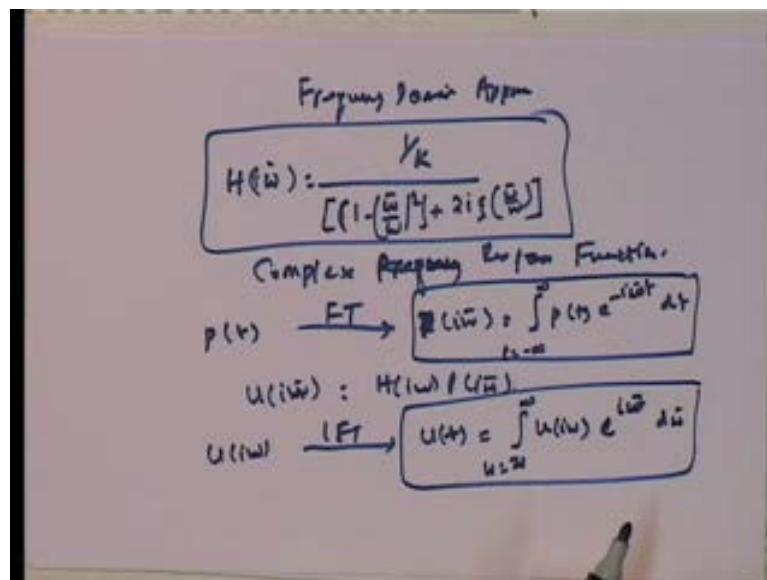 Frequency Domain Appro
H(iω̄) = 1/K / [(1-(ω̄/ω)²)+ 2iξ(ω̄/ω)]
Complex Frequency Respon Function.
p(t) FT→ P(iω̄) = ∫ p(t) e^-iω̄t dt
U(iω̄) : H(iω) P(iω̄)
U(iω) IFT→ U(t) = ∫ U(iω) e^iω̄ dω̄